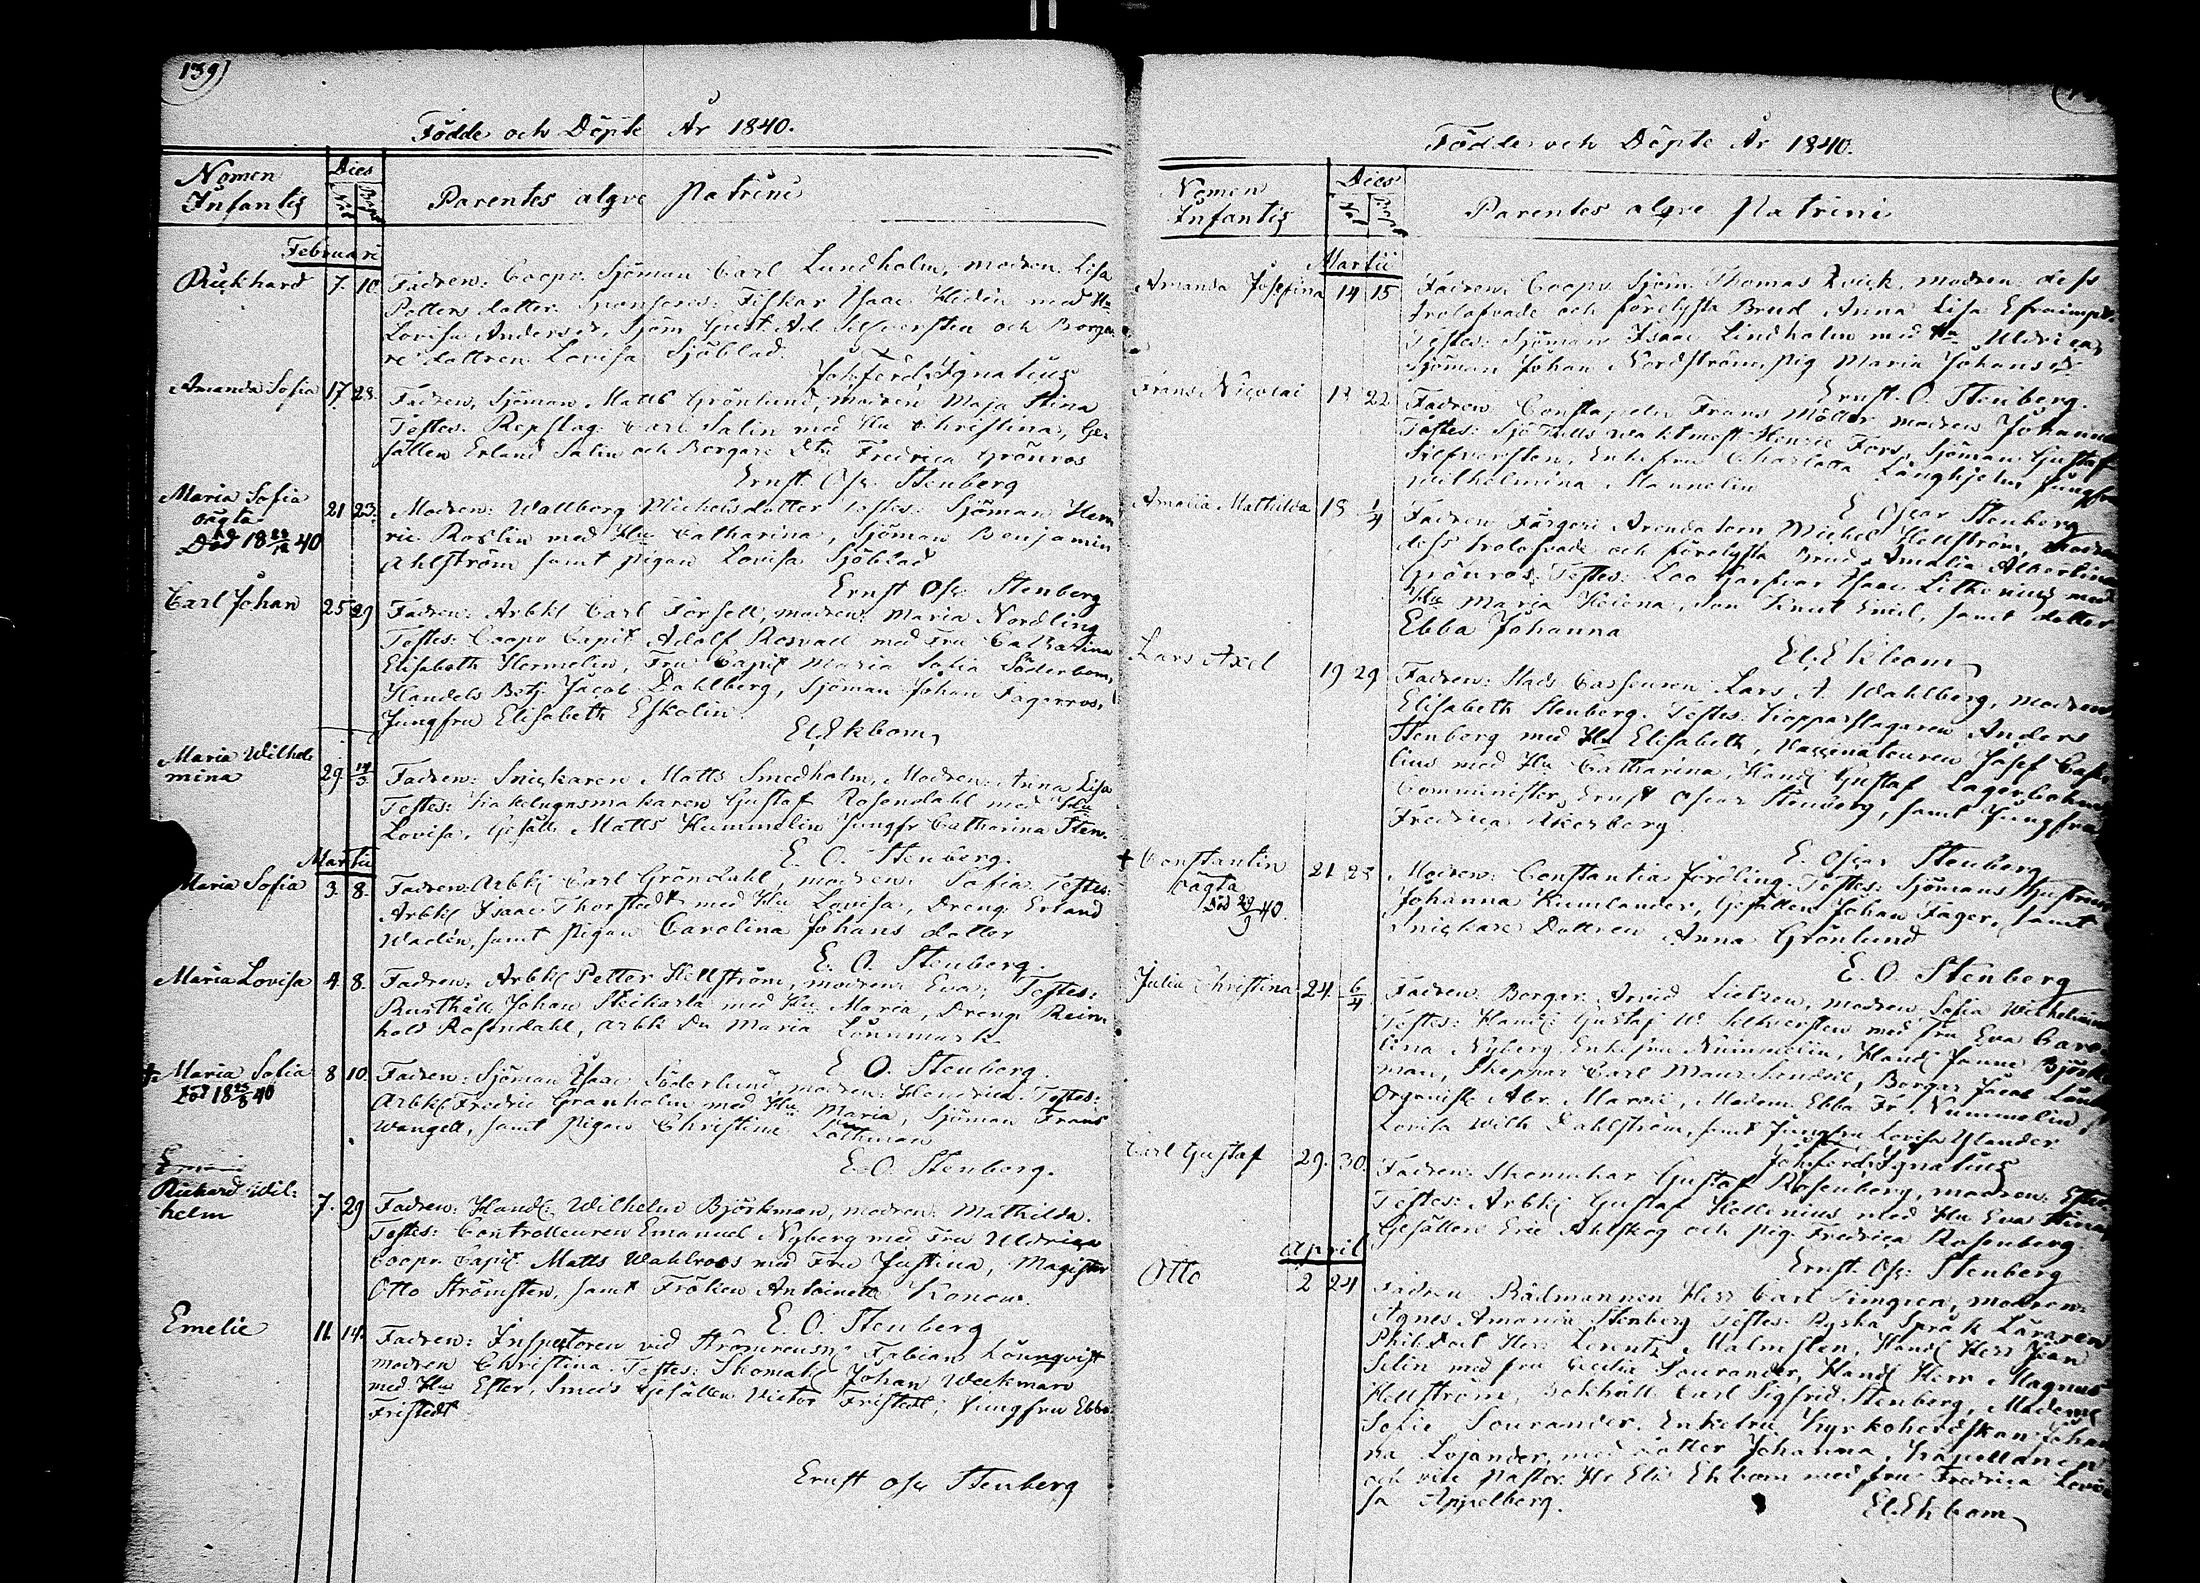 139)
Födde och Döpte År 1840.
Nomen Infantis
Dies
Nat Bapt
Parentes atqve Patrini
Februari
Rickhard 7. 10. Fadren: Coopv. Sjöman Carl Lundholm, modren Lisa
Petters dotter. Sponsores: Fiskar Isaac Hedén med Hu
Lovisa Anders dr, Sjöm Gust Ad Silfversten och Borga-
re dottren Lovisa Sjöblad.
Joh. Ferd. Ignatius
Amanda Sofia 17. 23. Fadren, Sjöman Matts Grönlund, modren Maja Stina
Testes: Repslag. Carl Salin med Hu Christina, Ge-
sällen Erland Salin och Borgare Dtr Fredrica Grönros
Ernst Osc. Stenberg
Maria Sofia 21 23. Modren: Wallborg Michelsdotter Testes: Sjöman Hen-
oägta
Död 18 40
ric Roslin med Hu Catharina, Sjöman Benjamin
Ahlström samt pigan Lovisa Sjöblad
Ernst Osc. Stenberg
Carl Johan 25 29 Fadren: Arbkl Carl Forsell, modren: Maria Nordling
Testes: Coopv Capit Adolf Rosvall med Fru Catharina
Elisabeth Hermelin, Fru Capit Maria Sofia Söderbom,
Handels Betj. Jacob Dahlberg, Sjöman Johan Fagerros,
Jungfru Elisabeth Eskolin.
El. Ekbom
Maria Wilhel-
mina 29. 14/3 Fadren: Snickaren Matts Smedholm, Modren: Anna Lisa
Testes: Kakelugnsmakaren Gustaf Rosendahl med Hu
Lovisa, Gesäll Matts Hummelin Jungfr Catharina Sten.
E. O. Stenberg.
Martii
Maria Sofia 3. 8. Fadren: Arbkl Carl Gröndahl, modren: Sofia. Testes:
Arbkl Isaac Thorstedt med Hu Lovisa, Dreng Erland
Wadén, samt Pigan Carolina Johans dotter
E. O. Stenberg.
Maria Lovisa 4 8. Fadren: Arbkl Petter Hellström, modren: Eva; Testes:
Rusthåll Johan Skikarla med Hu Maria, Dreng Rein-
hold Rosendahl, Arbk Dr Maria Lönnmark
E. O. Stenberg.
+ Maria Sofia 8 10. Fadren: Sjöman Isaac Söderlund, modren: Hendrica. Testes:
Död 18 40
Arbkl Fredric Granholm med Hu Maria, Sjöman Frans
Wangell, samt Pigan Christina Lothman
E. O. Stenberg.
Richard Wil-
helm 7. 29 Fadren: Handl: Wilhelm Björkman, modren: Mathilda.
Testes: Controlleuren Emanuel Nyberg med Fru Uldrica
Coopv. Capit. Matts Wahlroos med Fru Justina, Magister
Otto Strömsten, samt Fröken Antoinette Konow.
E. O. Stenberg
Emelie 11. 14. Fadren: Inspectoren vid Strömrensn: Fabian Lönnqvist
modren Christina. Testes: Skomak Johan Weckman
med Hu Ester, Smeds Gesällen Victor Fristedt, Jungfru Ebba
Fristedt
Ernst Osc Stenberg
Födde och Döpte År 1840.
Nomen Infantis
Dies
Parentes atqve Patrini
Martii
Amanda Josefina 14 15 Fadren: Coopv. Sjöm. Thomas Qvick, modren dess
trolofvade och förelysta Brud Anna Lisa Efraims
Testes: Sjöman Isaac Lindholm med Hu Uldrica,
Sjöman Johan Nordström, Pig Maria Johans dr
Ernst. O. Stenberg.
Frans Nicolai 13 22 Fadren Constapeln Frans Möller modren Johanna
Testes: Sjö Tulls vaktmest Henric Fors, Sjöman Gustaf
Silfversten, Enkefru Charlotta Långhjelm Jungfru
Wilhelmina Mannelin
E Oscar Stenberg
Amalia Mathilda 18 1/4 Fadren Färgeri Arendatorn Michel Hellström, modren
dess trolofvade och förelysta Brud Amalia Albertina
Grönros. Testes: Loo Garfvar Isaac Lithenius med
Hu Maria Helena, Son Knut Emil, samt dotter
Ebba Johanna
El. Ekbom
Lars Axel 19 29 Fadren: Stads Casseuren Lars A. Wahlberg, modren
Elisabeth Stenberg. Testes: Kopparslagaren Anders
Stenberg med Hu Elisabeth, Vaccinateuren Josef
lius med Hu Catharina, Handl Gustaf Lagerbohm
Comminister Ernst Oscar Stenberg, samt Jungfru
Fredrica Åkerberg
E. Oscar Stenberg
+ Constantin 21 23 Modren: Constantia Fördling. Testes: Sjömans Hustrun
oägta
Död 29/9 40.
Johanna Kumlander, Gesällen Johan Fager, samt
Snickare Dottren Anna Grönlund
E. O. Stenberg
Julia Christina 24. 6/4 Fadren: Borgar. Arvid Lietzen, modren Sofia Wilhelmina
Testes: Handl: Gustaf W. Silfversten med Fru Eva Caro-
lina Nyberg, Enkefru Nummelin, Handl Janne Björk-
man, Skeppar Carl Maur Sundell, Borgar Jacob
Organist Abr. Marvil, Madam Ebba Fr Nummelin,
Lovisa Wilh Dahlström, samt Jungfru Lovisa Ylander
Joh. Ferd. Ignatius
Carl Gustaf 29. 30. Fadren: Skomakar Gustaf Rosenberg, modren: Ester
Testes: Arbkl Gustaf Hellenius med Hu Eva Stina
Gesällen Eric Ahlskog och pig. Fredrica Rosenberg.
Ernst. Osc: Stenberg
April
Otto 2 24 Fadren Rådmannen Herr Carl modren:
Agnes Amanda Stenberg Testes: Ryska Språk Läraren
Phil. Doct Herr Lorentz Malmsten, Handl Herr Jean
Selin med fru Cecilia Sourander, Handl Herr Magnus
Hellström, Bokhåll Carl Sigfrid Stenberg, Madame
Sofie Sourander, Enkefru Kyrkoherdskan Johan-
na Lojander, med dotter Johanna, Kapellanen
och vice Pastor Hr Elis Ekbom med fru Fredrica Lovi-
sa Appelberg.
El. Ekbom